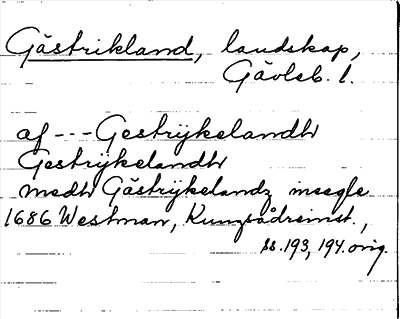 Gästrikland, landskap,
Gävleb. l.
af --- Gestrijkelandh
Gestrijkelandh
medh Gästrijkelandz insegle
1686 Westman, Kungsådreinst.,
ss. 193, 194. orig.